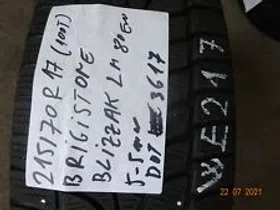 215/70R17 (100T)
BRIGISTONE
BLIZZAK LM 80 EVO
5-5mm
DOT 3617
WE217
22 07 2021